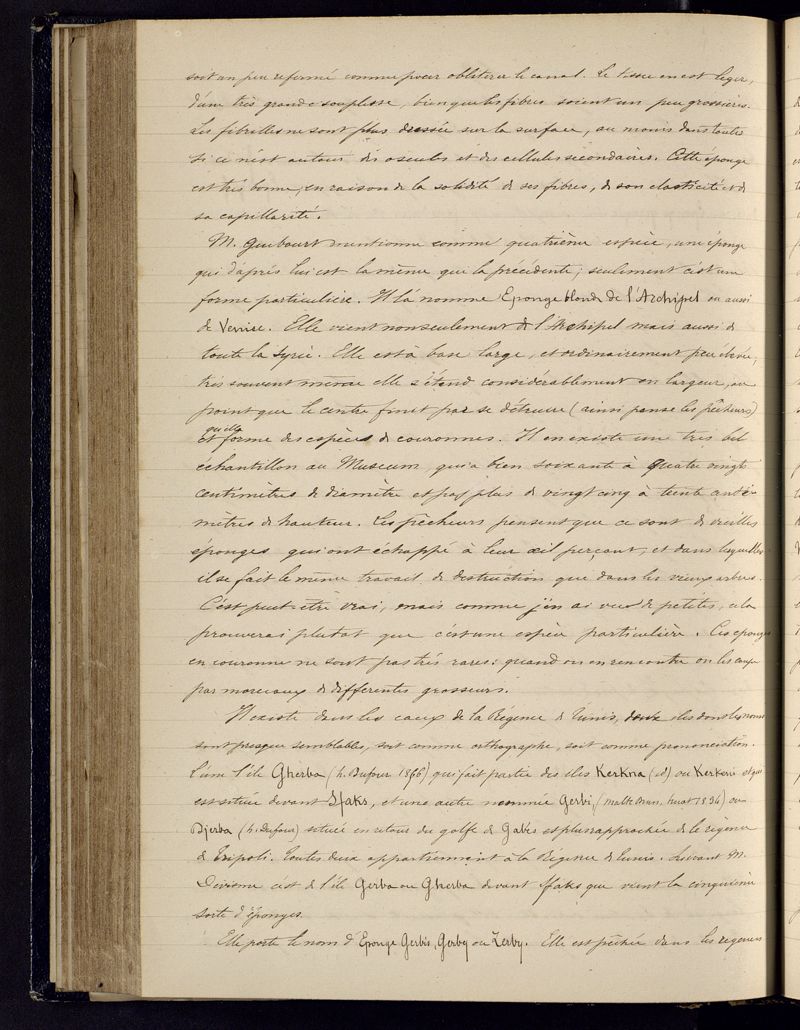 soit un peu refermé comme pour obliterer le canal. Le tissu en est leger,
d'une très grande souplesse, bien que les fibres soient un peu grossières.
Les fibrilles ne sont plus dressée sur la surface, au moins dans toutes
si ce n'est autour des oscules et des cellules secondaires. Cette éponge
est très bonne, en raison de la solidité de ses fibres, de son elasticité et de
sa capillarité.
M. Guibourt mentionne comme quatrième espèce, une éponge
qui d'après lui est la même que la précédente; seulement c'est une
forme particulière. Il la nomme Eponge blonde de l'Archipel ou aussi
de Venise. Elle vient non seulement de l'Archipel mais aussi de
toute la Syrie. Elle est à base large, et ordinairement peu élevée,
très souvent même elle s'étend considérablement en largeur, au
point que le centre finit par se détruire (ainsi pense les pêcheurs)
et qu'elle forme des espèces de couronnes. Il en existe une très bel
échantillon au Museum, qui a bien soixante à quatre vingts
centimètres de diamètre et pas plus de vingt cinq à trente centi-
mètres de hauteur. Les pêcheurs pensent que ce sont de vieilles
éponges qui ont échappé à leur œil perçant, et dans lesquelles
il se fait le même travail de destruction que dans les vieux arbres.
C'est peut-être vrai, mais comme j'en ai vu de petites, cela
prouverai plutot que c'est une espèce particulière. Ces eponges
en couronne ne sont pas très rares: quand on en rencontre on les coupe
par morceaux de differentes grosseurs.
Il existe dans les eaux de la Régence de Tunis, deux iles dont les noms
sont presque semblables, soit comme orthographe, soit comme prononciation.
l'une l'île Gherba (h. Dufour 1876) qui fait partie des iles Kerkna (id) ou Kerkeni et qui
est située devant Sfaks, et une autre nommée Gerbi, (Malte Brun, huot 1834) ou
Djerba (h. Dufour) située en retour du golfe de Gabès est plus rapprochée de la régence
de Tripoli. Toutes deux appartiennent à la Régence de Tunis. Suivant M.
c'est de l'île Gerba ou Gherba devant Sfaks que vient la cinquième
sorte d'éponges.
Elle porte le nom d'Eponge Gerbis, Gerby ou Zerby. Elle est pêchée dans les regences